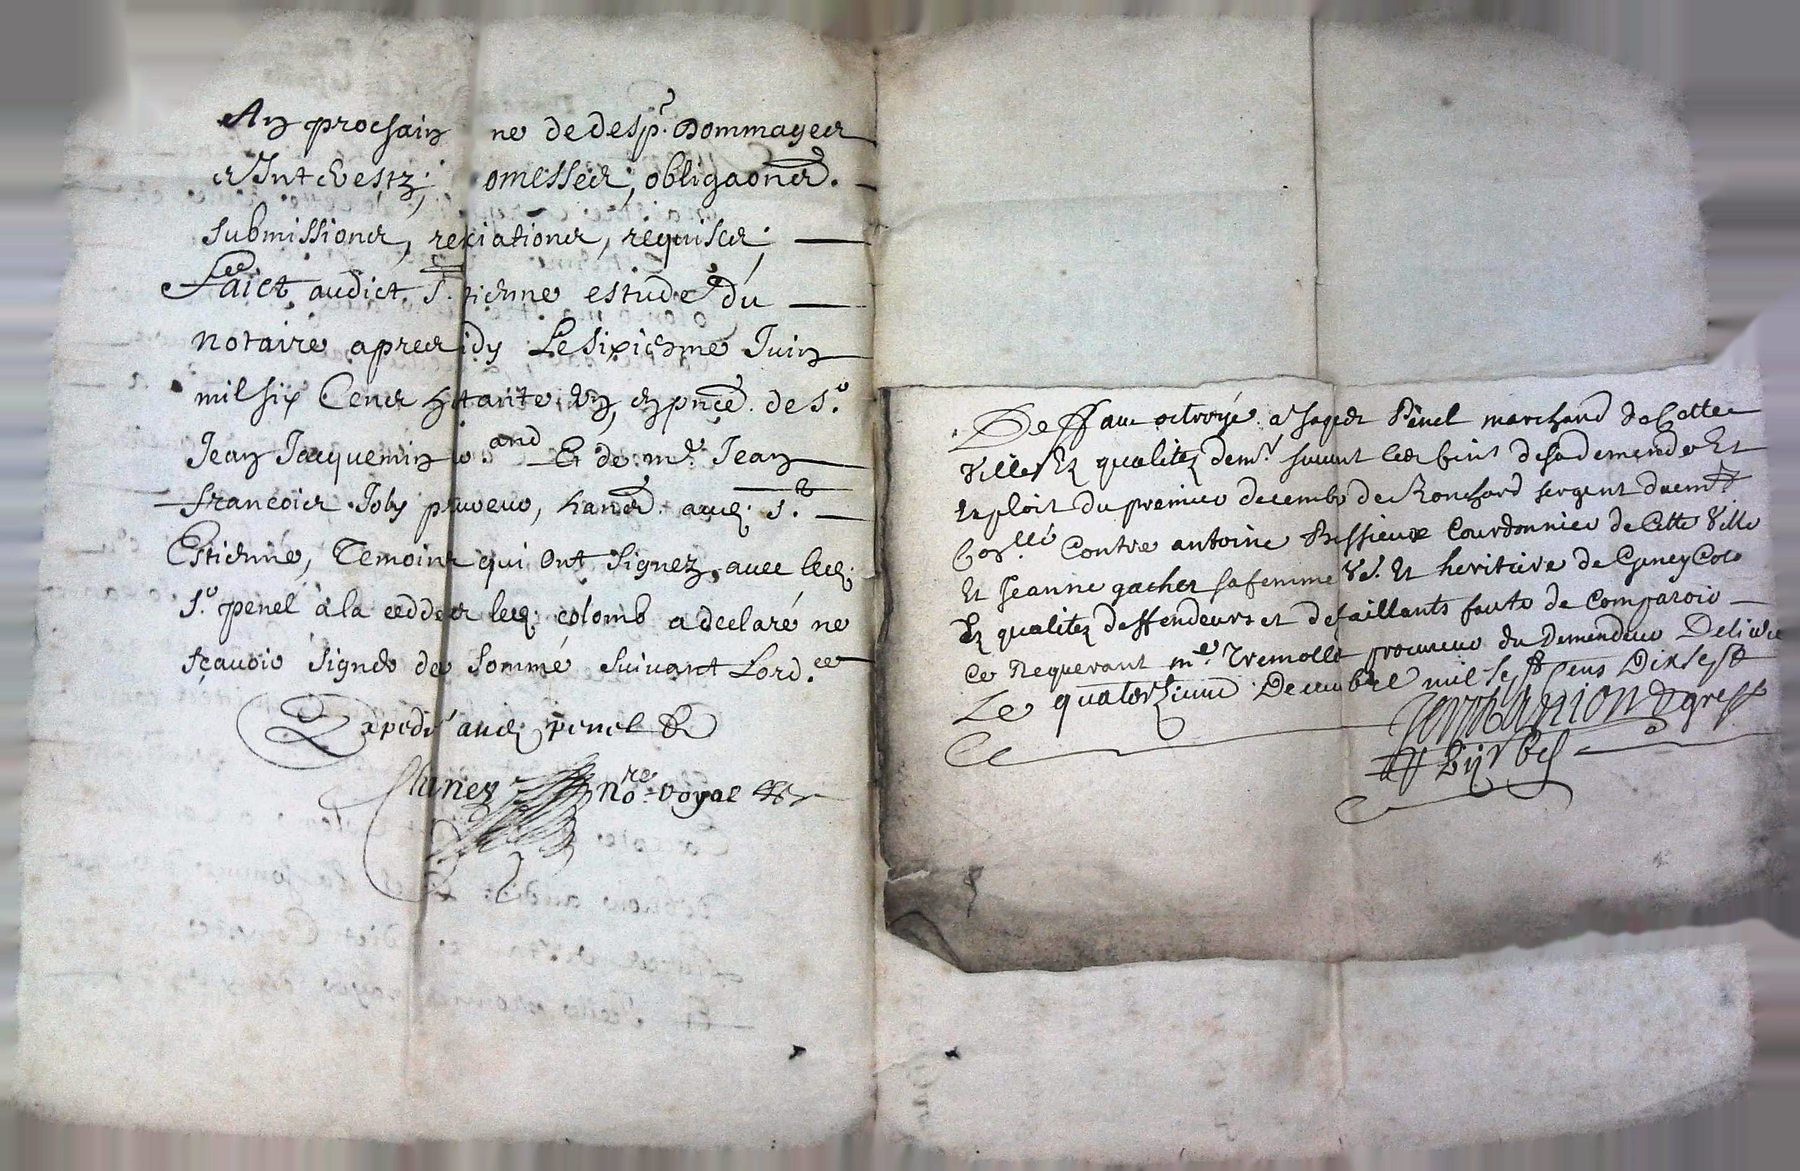 An prochain ne de desp. dommages
et Interestz; omesses, obligaōnes.
submissiones, reñciationes, requises;
Faict audict S.t tienne estude du
notaire apres idy Le sixiesme Juin
mil six Cens htante un, en pñce de S.r
Jean Jacquemin and Et de m.e Jean
francois Joby praveur, hans aud. S.t
Estienne, Temoins qui ont signez, avec led.
S.r penel à la cedde led. colomb a declaré ne
sçavoir signer de sommé suivant Lord.ce
Expedié aud. penel
No.re Royal
Deffaut octroyé a Jaques Penel marchand de Cette
Ville Ez qualitez dem.r suivant les fins de sa demende Et
Exploit du premier decembre de Ronchard sergent duemt
Con.llé Contre antoine Bessieux Courdonnier de Cette Ville
Et Jeanne gacher sa femme Et heritiere de
Ez qualitez deffendeurs et defaillants faute de Comparoir
Ce Requerant m.e Tremollet procureur du Demendeur Delivré
Le quatorzieme Decembre mil sept Cens Dixsept
Greff